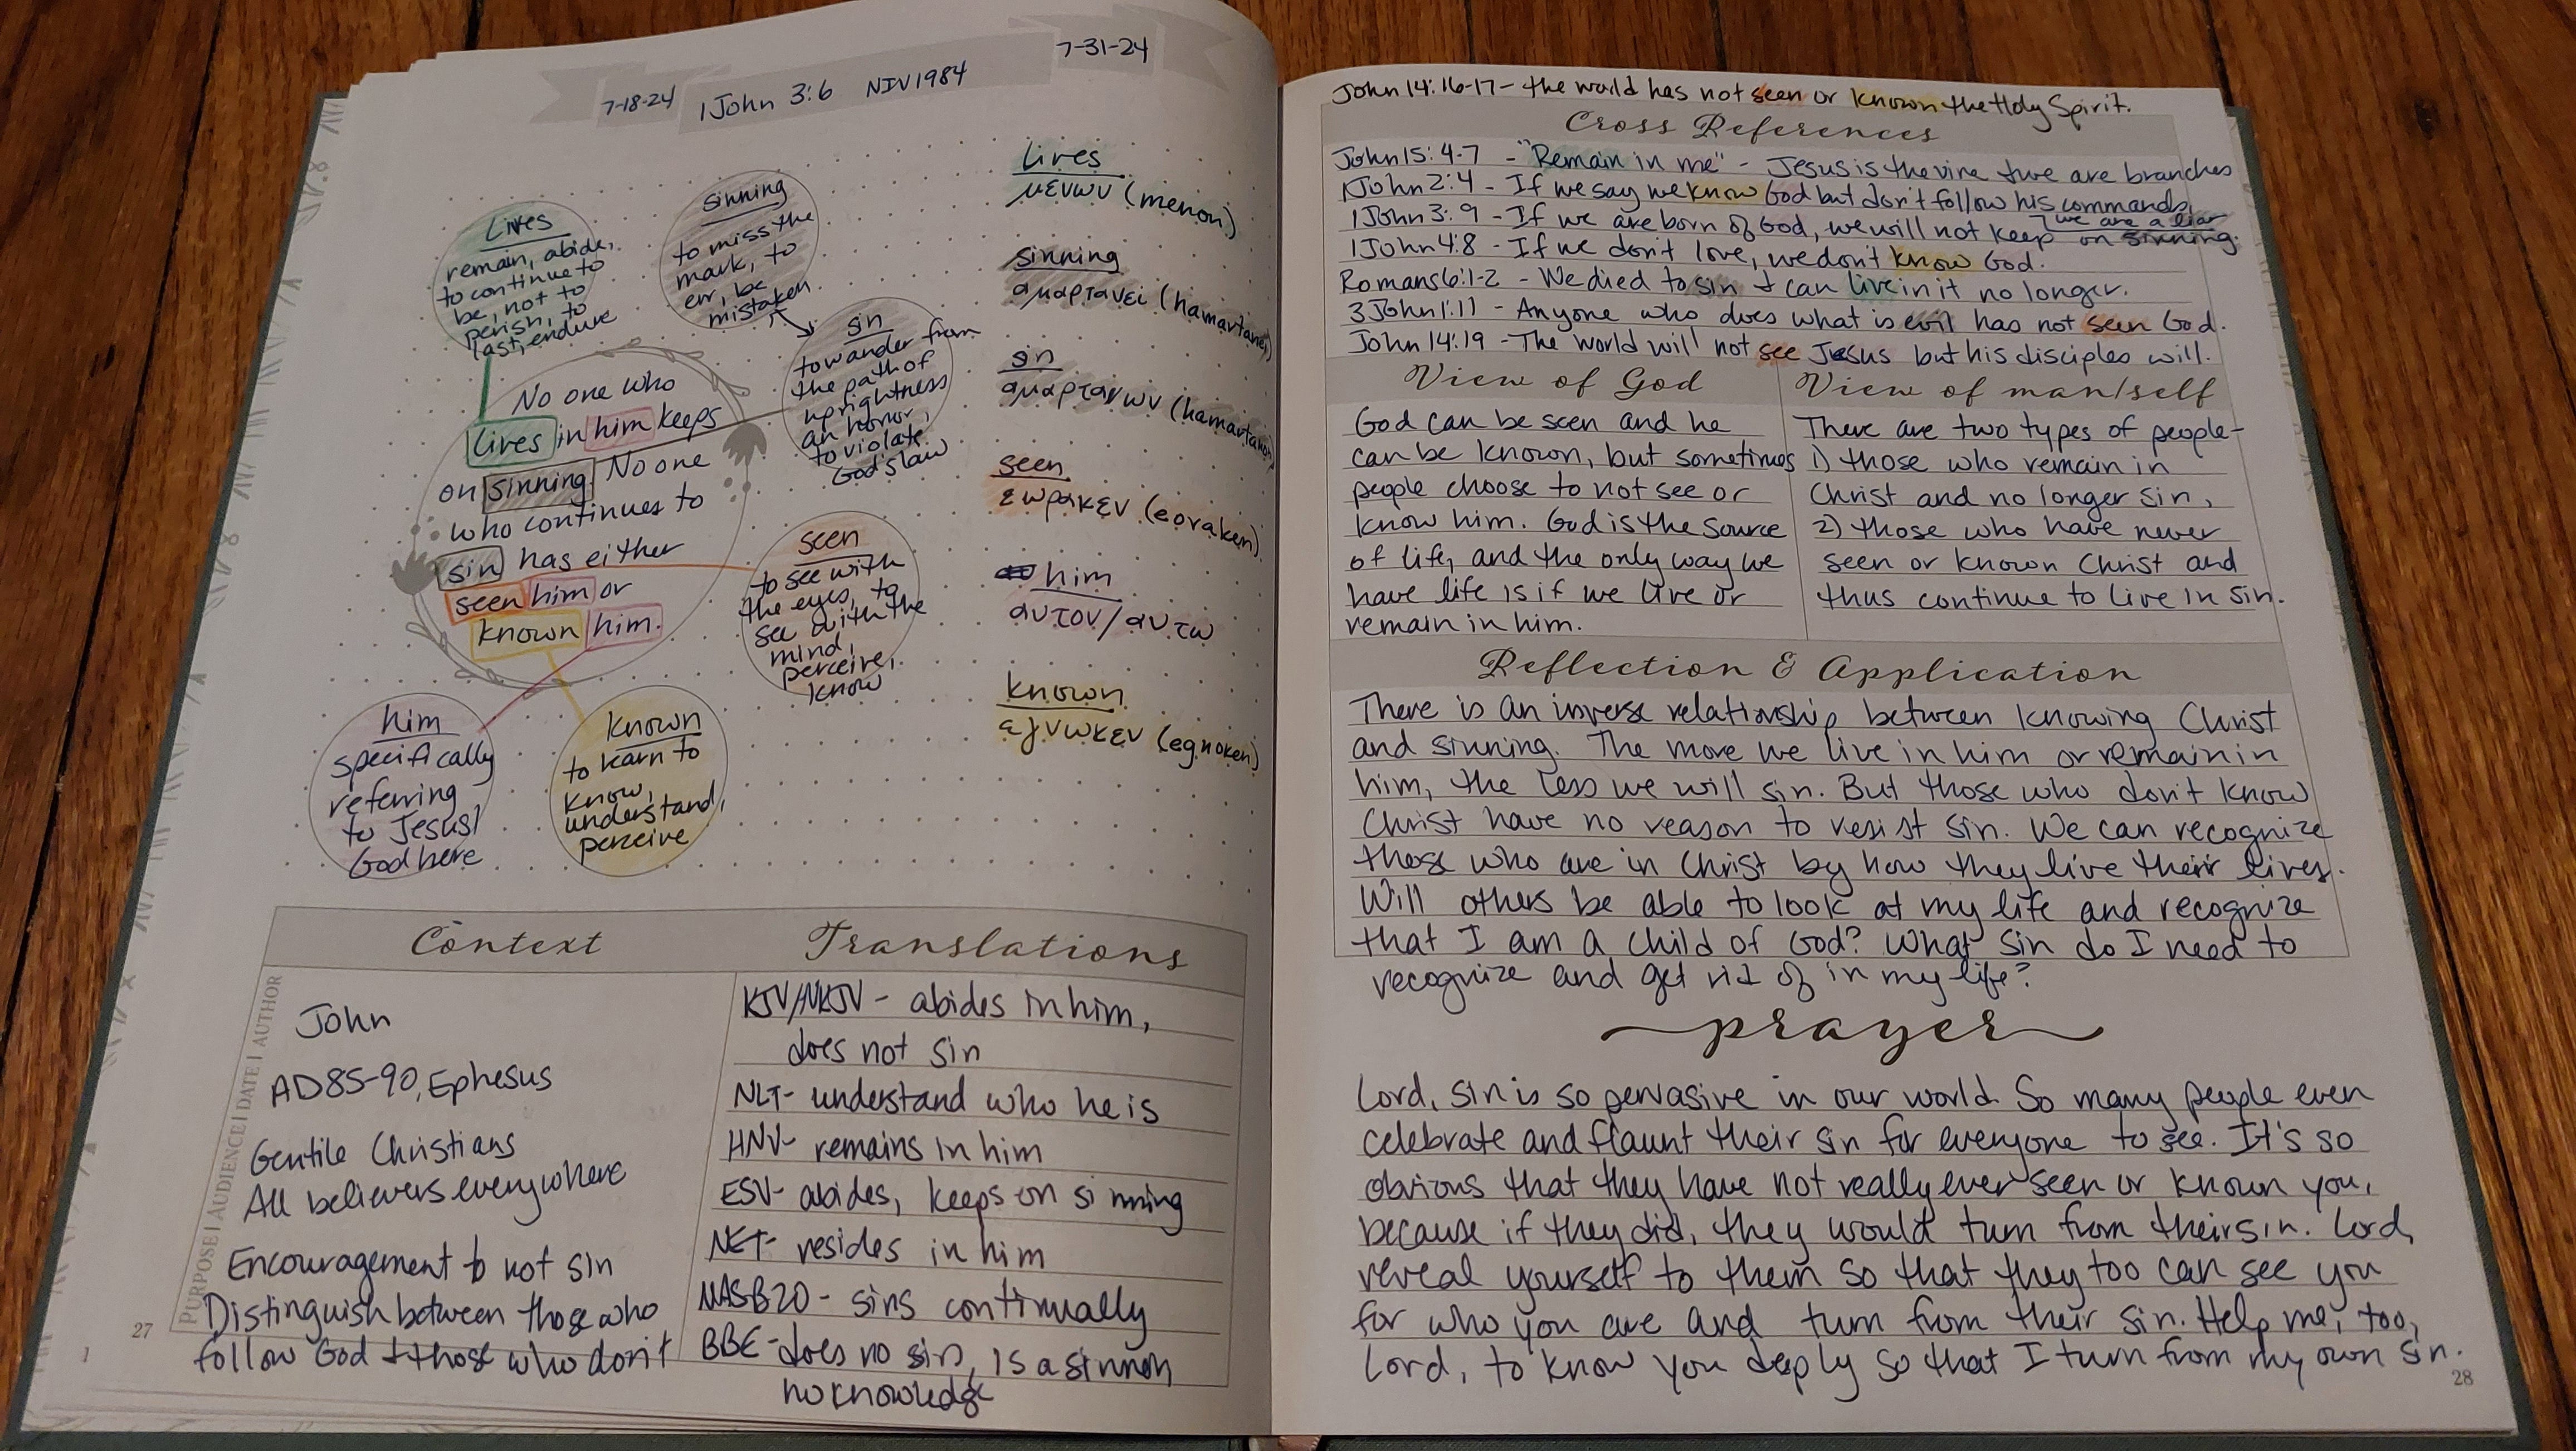 7-18-24
1 John 3:6 NIV1984
7-31-24
Lives
remain, abide,
to continue to
be, not to
perish, to
last, endure
sinning
to miss the
mark, to
err, be
mistaken
sin
to wander from
the path of
uprightness
an honor,
to violate
God's law
No one who
lives in him keeps
on sinning. No one
who continues to
sin has either
seen him or
known him.
seen
to see with
the eyes, to
see with the
mind,
perceive,
know
him
specifically
referring
to Jesus/
God here
known
to learn to
know,
understand,
perceive
lives
μενων (menon)
sinning
αμαρτανει (hamartanei)
sin
αμαρτανων (hamartanon)
seen
εωρακεν (eoraken)
him
αυτον/αυτω
known
εγνωκεν (egnoken)
Context
PURPOSE | AUDIENCE | DATE | AUTHOR
John
AD 85-90, Ephesus
Gentile Christians
All believers everywhere
Encouragement to not sin
Distinguish between those who
follow God & those who don't
Translations
KJV/NKJV - abides in him,
does not sin
NLT- understand who he is
HNV- remains in him
ESV- abides, keeps on sinning
NET- resides in him
NASB20 - sins continually
BBE- does no sin, is a sinner
no knowledge
27
John 14:16-17 - the world has not seen or known the Holy Spirit.
Cross References
John 15:4-7 - "Remain in me" - Jesus is the vine & we are branches
1 John 2:4 - If we say we know God but don't follow his commands,
we are a liar
1 John 3:9 - If we are born of God, we will not keep on sinning.
1 John 4:8 - If we don't love, we don't know God.
Romans 6:1-2 - We died to sin & can live in it no longer.
3 John 1:11 - Anyone who does what is evil has not seen God.
John 14:19 - The world will not see Jesus but his disciples will.
View of God
God can be seen and he
can be known, but sometimes
people choose to not see or
know him. God is the source
of life, and the only way we
have life is if we live or
remain in him.
View of man/self
There are two types of people-
1) those who remain in
Christ and no longer sin,
2) those who have never
seen or known Christ and
thus continue to live in sin.
Reflection & Application
There is an inverse relationship between knowing Christ
and sinning. The more we live in him or remain in
him, the less we will sin. But those who don't know
Christ have no reason to resist sin. We can recognize
those who are in Christ by how they live their lives.
Will others be able to look at my life and recognize
that I am a child of God? What sin do I need to
recognize and get rid of in my life?
prayer
Lord, sin is so pervasive in our world. So many people even
celebrate and flaunt their sin for everyone to see. It's so
obvious that they have not really ever seen or known you,
because if they did, they would turn from their sin. Lord,
reveal yourself to them so that they too can see you
for who you are and turn from their sin. Help me, too,
Lord, to know you deeply so that I turn from my own sin.
28